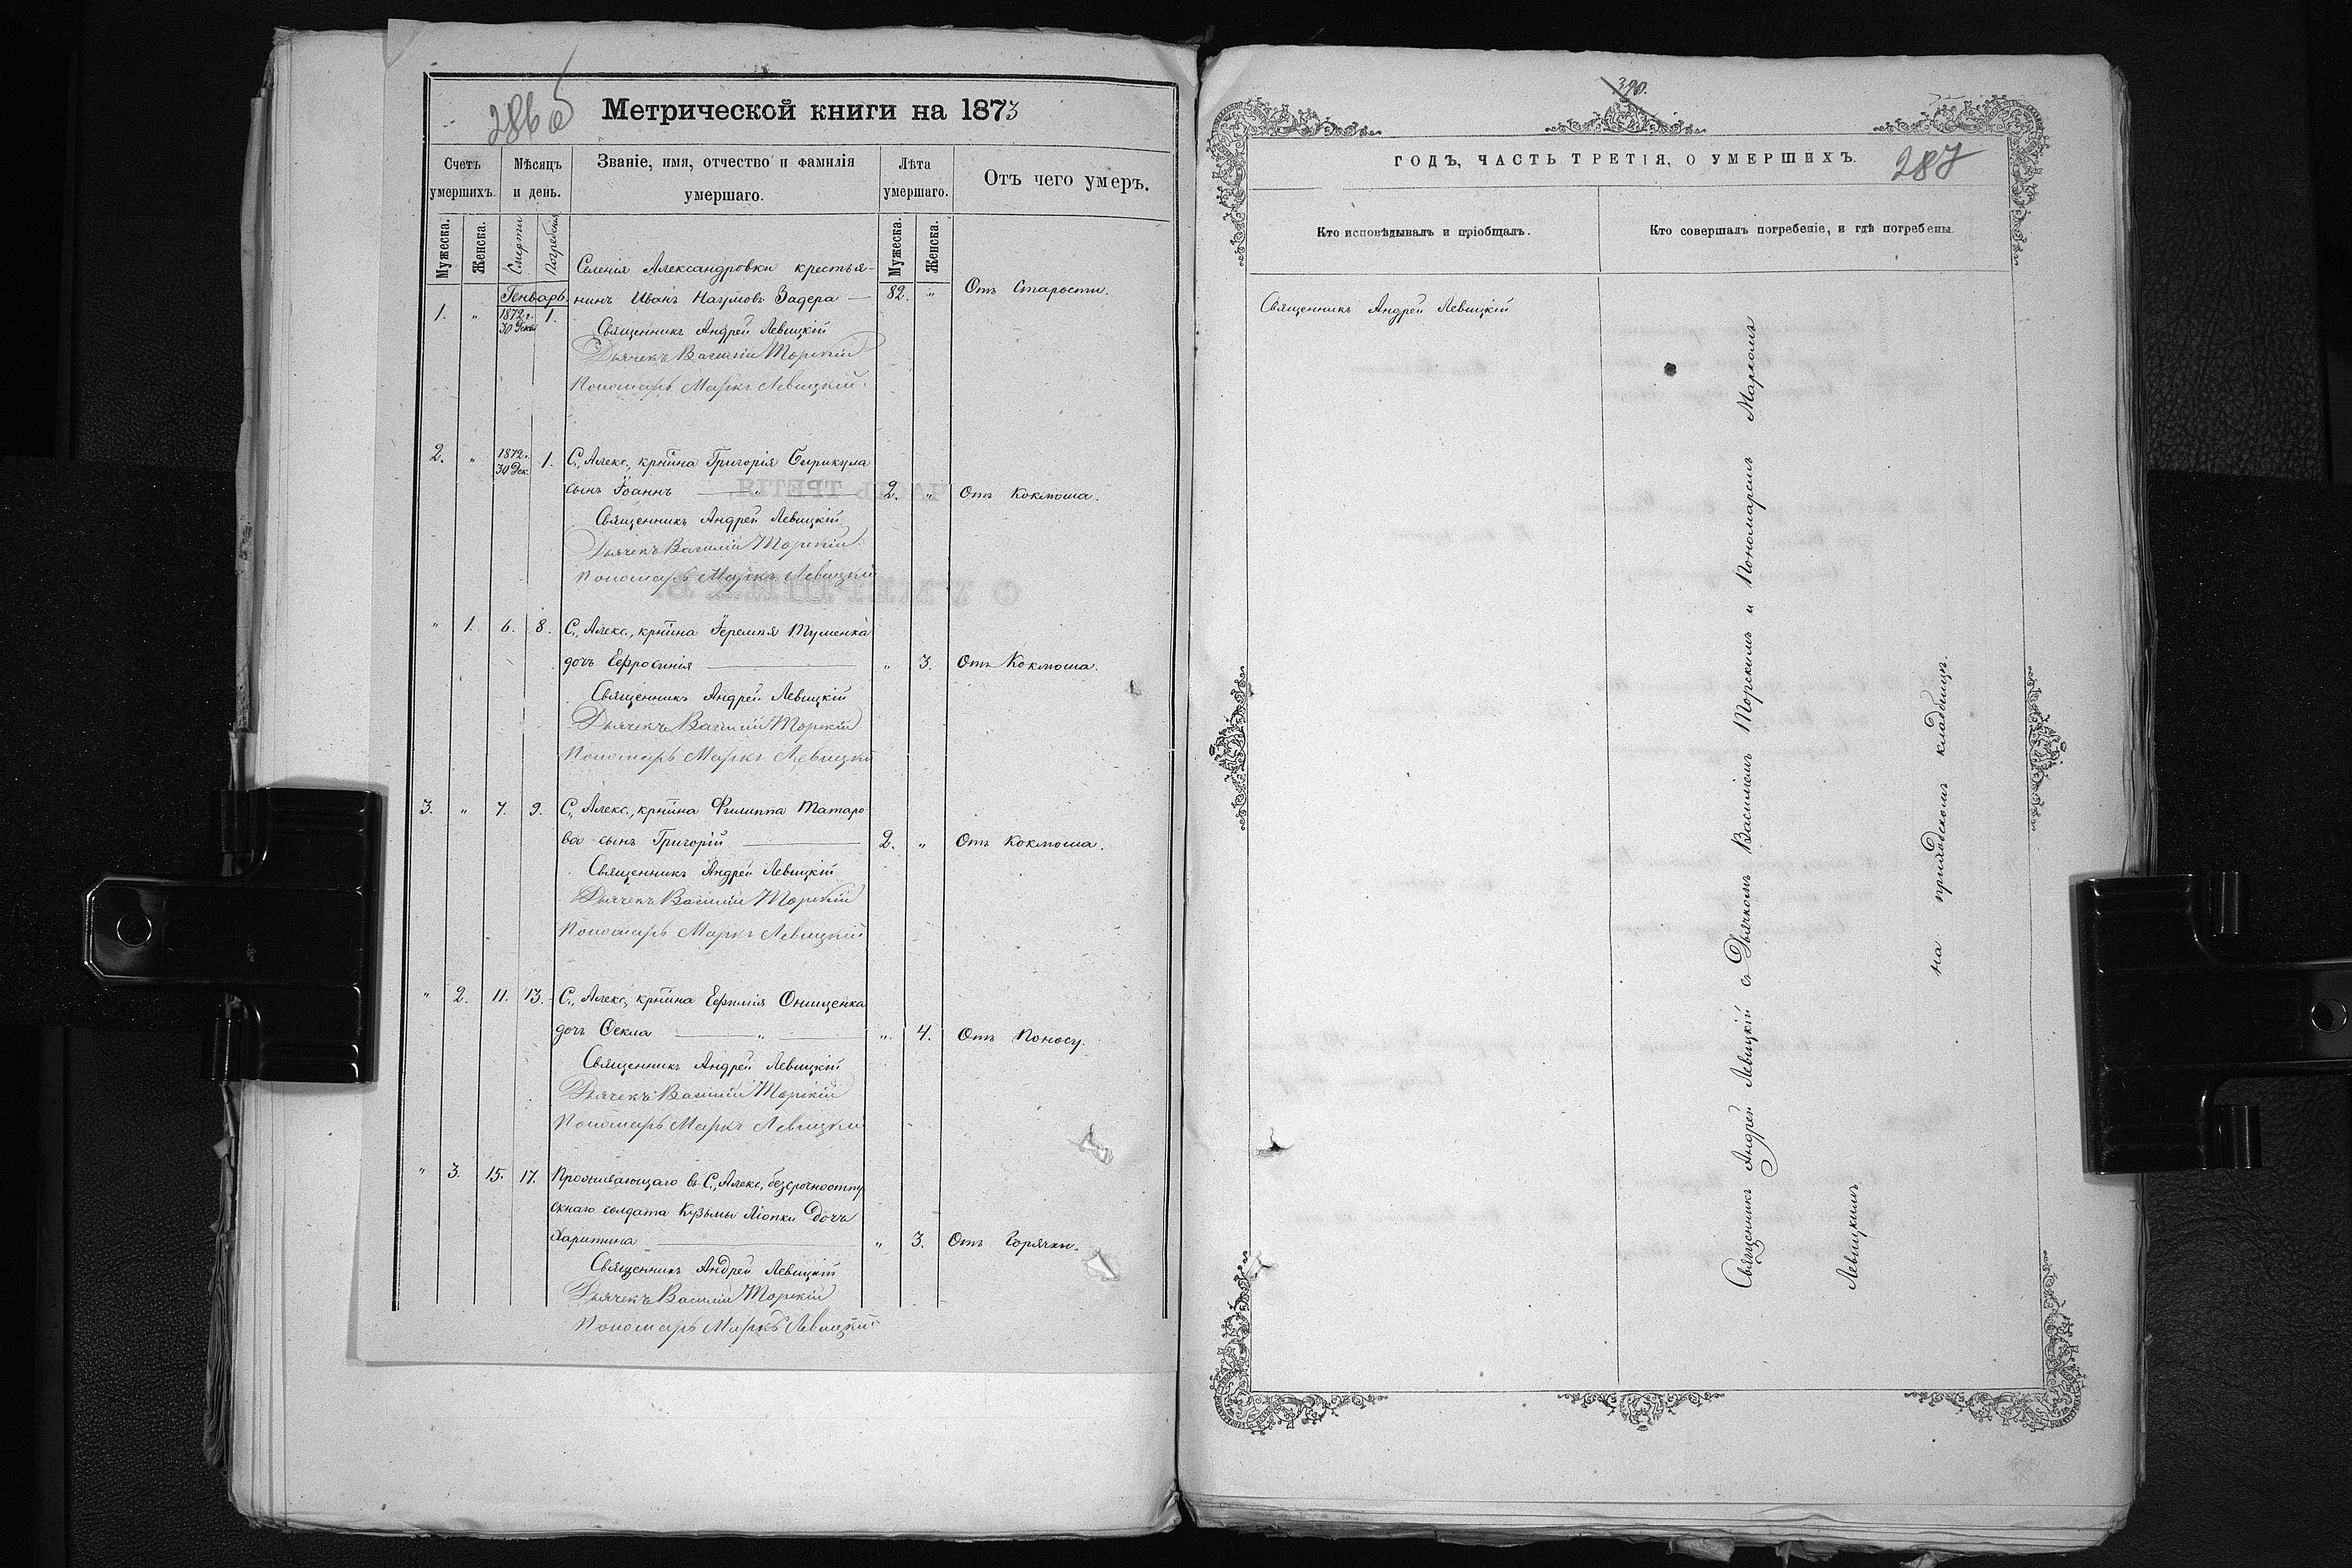 286 об
Метрической книги на 1873
Счетъ умершихъ.
Мѣсяцъ и день.
Званіе, имя, отчество и фамилія умершаго.
Лѣта умершаго.
Отъ чего умеръ.
Мужеска. Женска. Смерти Погребенія Мужеска. Женска.
Селенія Александровки крестья-
Генварь. нинъ Иванъ Наумовъ Задера — 82. " Отъ Старости.
1. " 1872 г. 30 Декб. 1.
Священникъ Андрей Левицкій
Дьячекъ Василій Торскій
Пономарь Маркъ Левицкій.
2. " 1872 г. 30 Дек. 1. С., Алекс., крнина Григорія Сирикула
сынъ Іоаннъ — " — 2. " Отъ Коклюша.
Священникъ Андрей Левицкій
Дьячекъ Василій Торскій
Пономарь Маркъ Левицкій
" 1. 6. 8. С., Алекс., крнина Іеремія Туменка
дочь Ефросинія — " 3. Отъ Коклюша.
Священникъ Андрей Левицкій
Дьячекъ Василій Торскій
Пономарь Маркъ Левицкій
3. " 7. 9. С., Алекс., крнина Филиппа Татаро
ва сынъ Григорій — 2. " Отъ Коклюша.
Священникъ Андрей Левицкій
Дьячекъ Василій Торскій
Пономарь Маркъ Левицкій
" 2. 11. 13. С., Алекс., крнина Ефимія Онищенка
дочь Ѳекла — " — " 4. Отъ Поносу.
Священникъ Андрей Левицкій
Дьячекъ Василій Торскій
Пономарь Маркъ Левицкій
" 3. 15. 17. Проживающаго въ С., Алекс., безсрочноотпу
скнаго солдата Кузьмы Ліопки дочь
Харитина — " 3. Отъ Горячки.
Священникъ Андрей Левицкій
Дьячекъ Василій Торскій
Пономарь Маркъ Левицкій
390.
ГОДЪ, ЧАСТЬ ТРЕТІЯ, О УМЕРШИХЪ.
287
Кто исповѣдывалъ и пріобщалъ.
Кто совершалъ погребеніе, и гдѣ погребены.
Священникъ Андрей Левицкій
Священникъ Андрей Левицкій съ Дьячкомъ Василіемъ Торскимъ и Пономаремъ Маркомъ
Левицкимъ
на приходскомъ кладбищѣ.